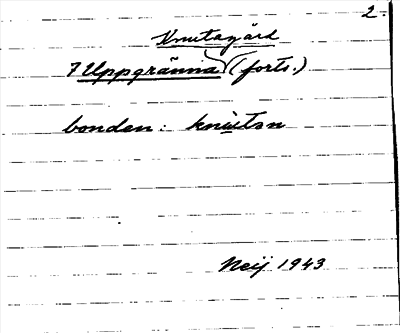 2.
Knutagård
7 Uppgränna (forts.)
bonden: knutsn
Neij 1943